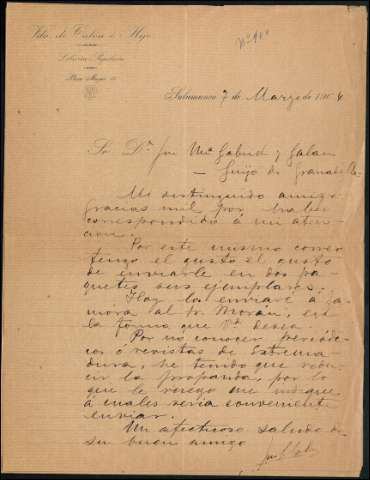 Vda. de Calón é Hijo
Librería
Plaza Mayor
Salamanca 7 de Marzo de 1904
Sr Dn José Mª Gabriel y Galan
Guijo de Granadilla
Mi distinguido amigo
gracias mil por haber
correspondido á mi aten
cion.
Por este mismo correo
tengo el gusto el gusto
de enviarle en dos pa
quetes sus ejemplares.
Hoy los enviaré á Za
mora al Sr. Moran, en
la forma que Vd desea.
Por no conocer periódi
cos ó revistas de Extrema
dura, he tenido que redu
cir la propaganda, por lo
que le ruego me indique
á cuales sería conveniente
enviar.
Un afectuoso saludo de
su buen amigo